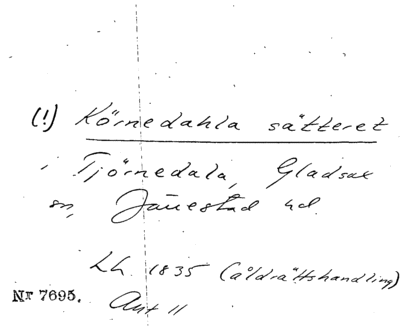 (!) Körnedahla sätteret
i Tjörnedala, Gladsax
sn, Järrestad hd.
Lh. 1835 (åldrättshandling)
Nr 7695.
Akt 11